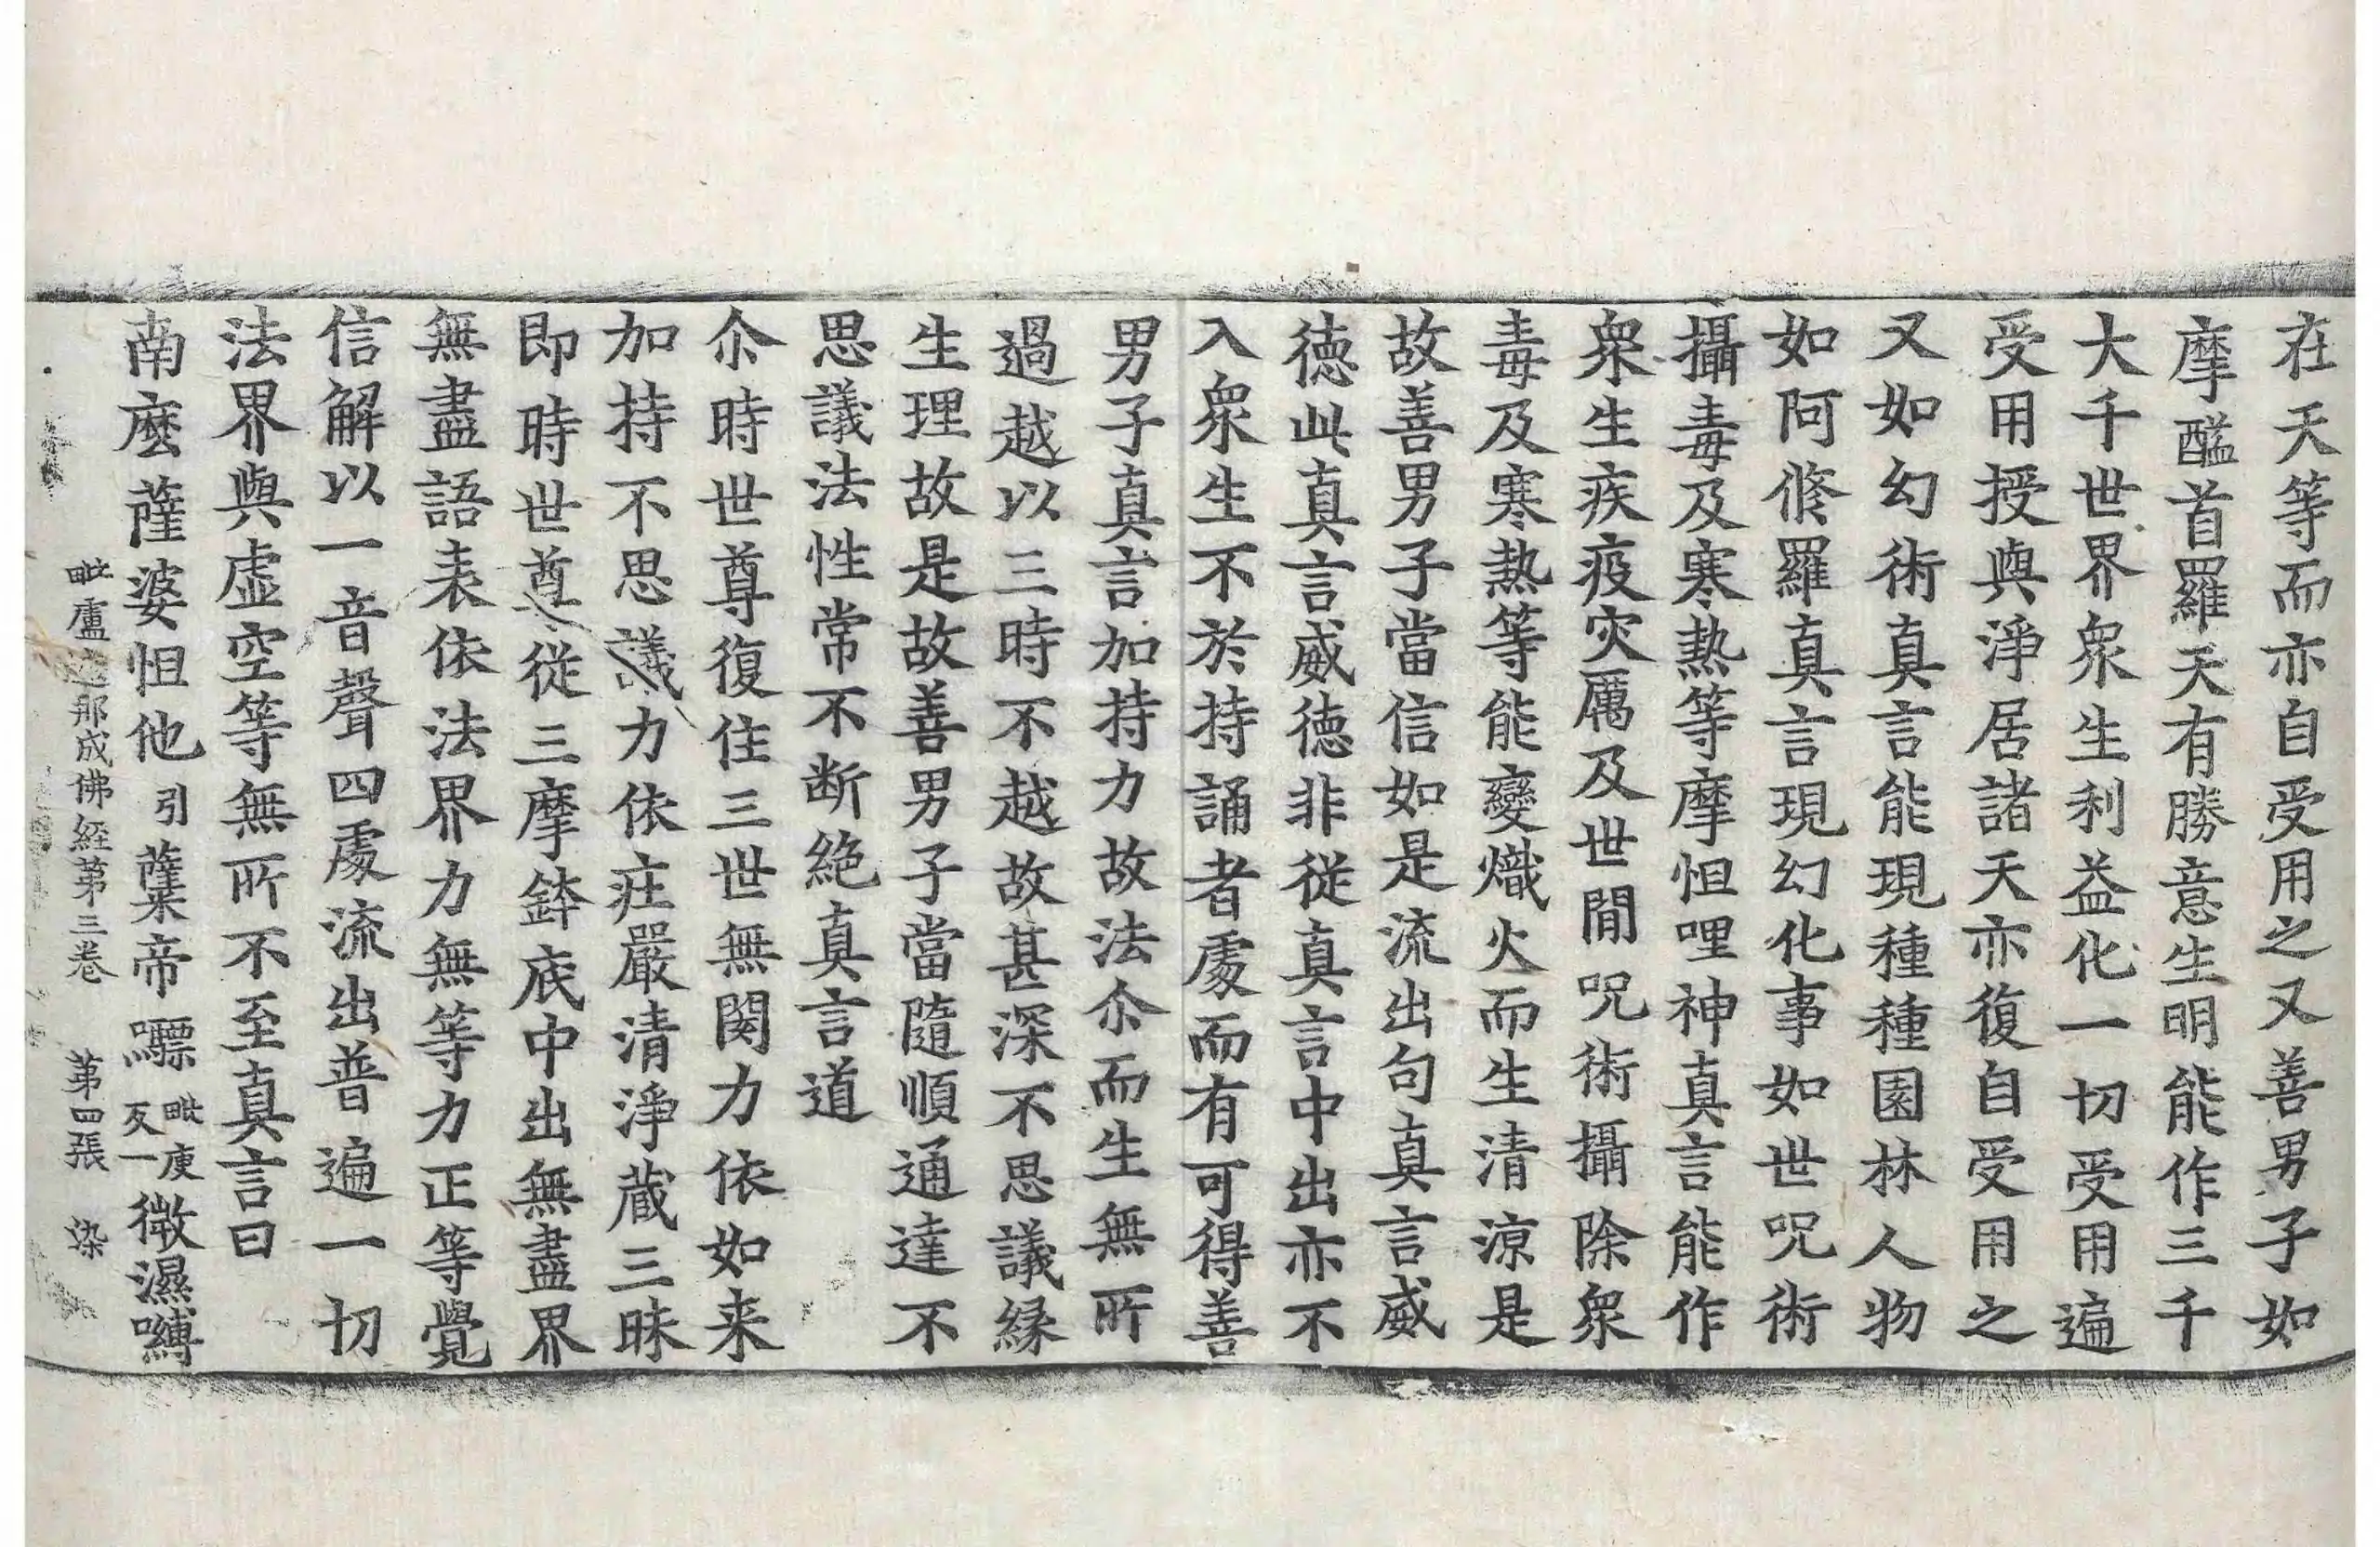 在天等而亦自受用之又善男子如
摩醯首羅天有勝意生明能作三千
大千世界衆生利益化一切受用遍
受用授與淨居諸天亦復自受用之
又如幻術真言能現種種園林人物
如阿脩羅真言現幻化事如世呪術
攝毒及寒熱等摩怛哩神真言能作
衆生疾疫灾厲及世閒呪術攝除衆
毒及寒熱等能變熾火而生清涼是
故善男子當信如是流出句真言威
德此真言威德非從真言中出亦不
入衆生不於持誦者處而有可得善
男子真言加持力故法尒而生無所
過越以三時不越故甚深不思議縁
生理故是故善男子當隨順通達不
思議法性常不断絶真言道
尒時世尊復住三世無閡力依如来
加持不思議力依莊嚴清淨藏三昧
即時世尊從三摩鉢底中出無盡界
無盡語表依法界力無等力正等覺
信解以一音聲四處流出普遍一切
法界與虚空等無所不至真言曰
南麽薩婆怛他引蘖帝驃毗庾反一微濕嚩
毗盧遮那成佛經第三卷 第四張 染